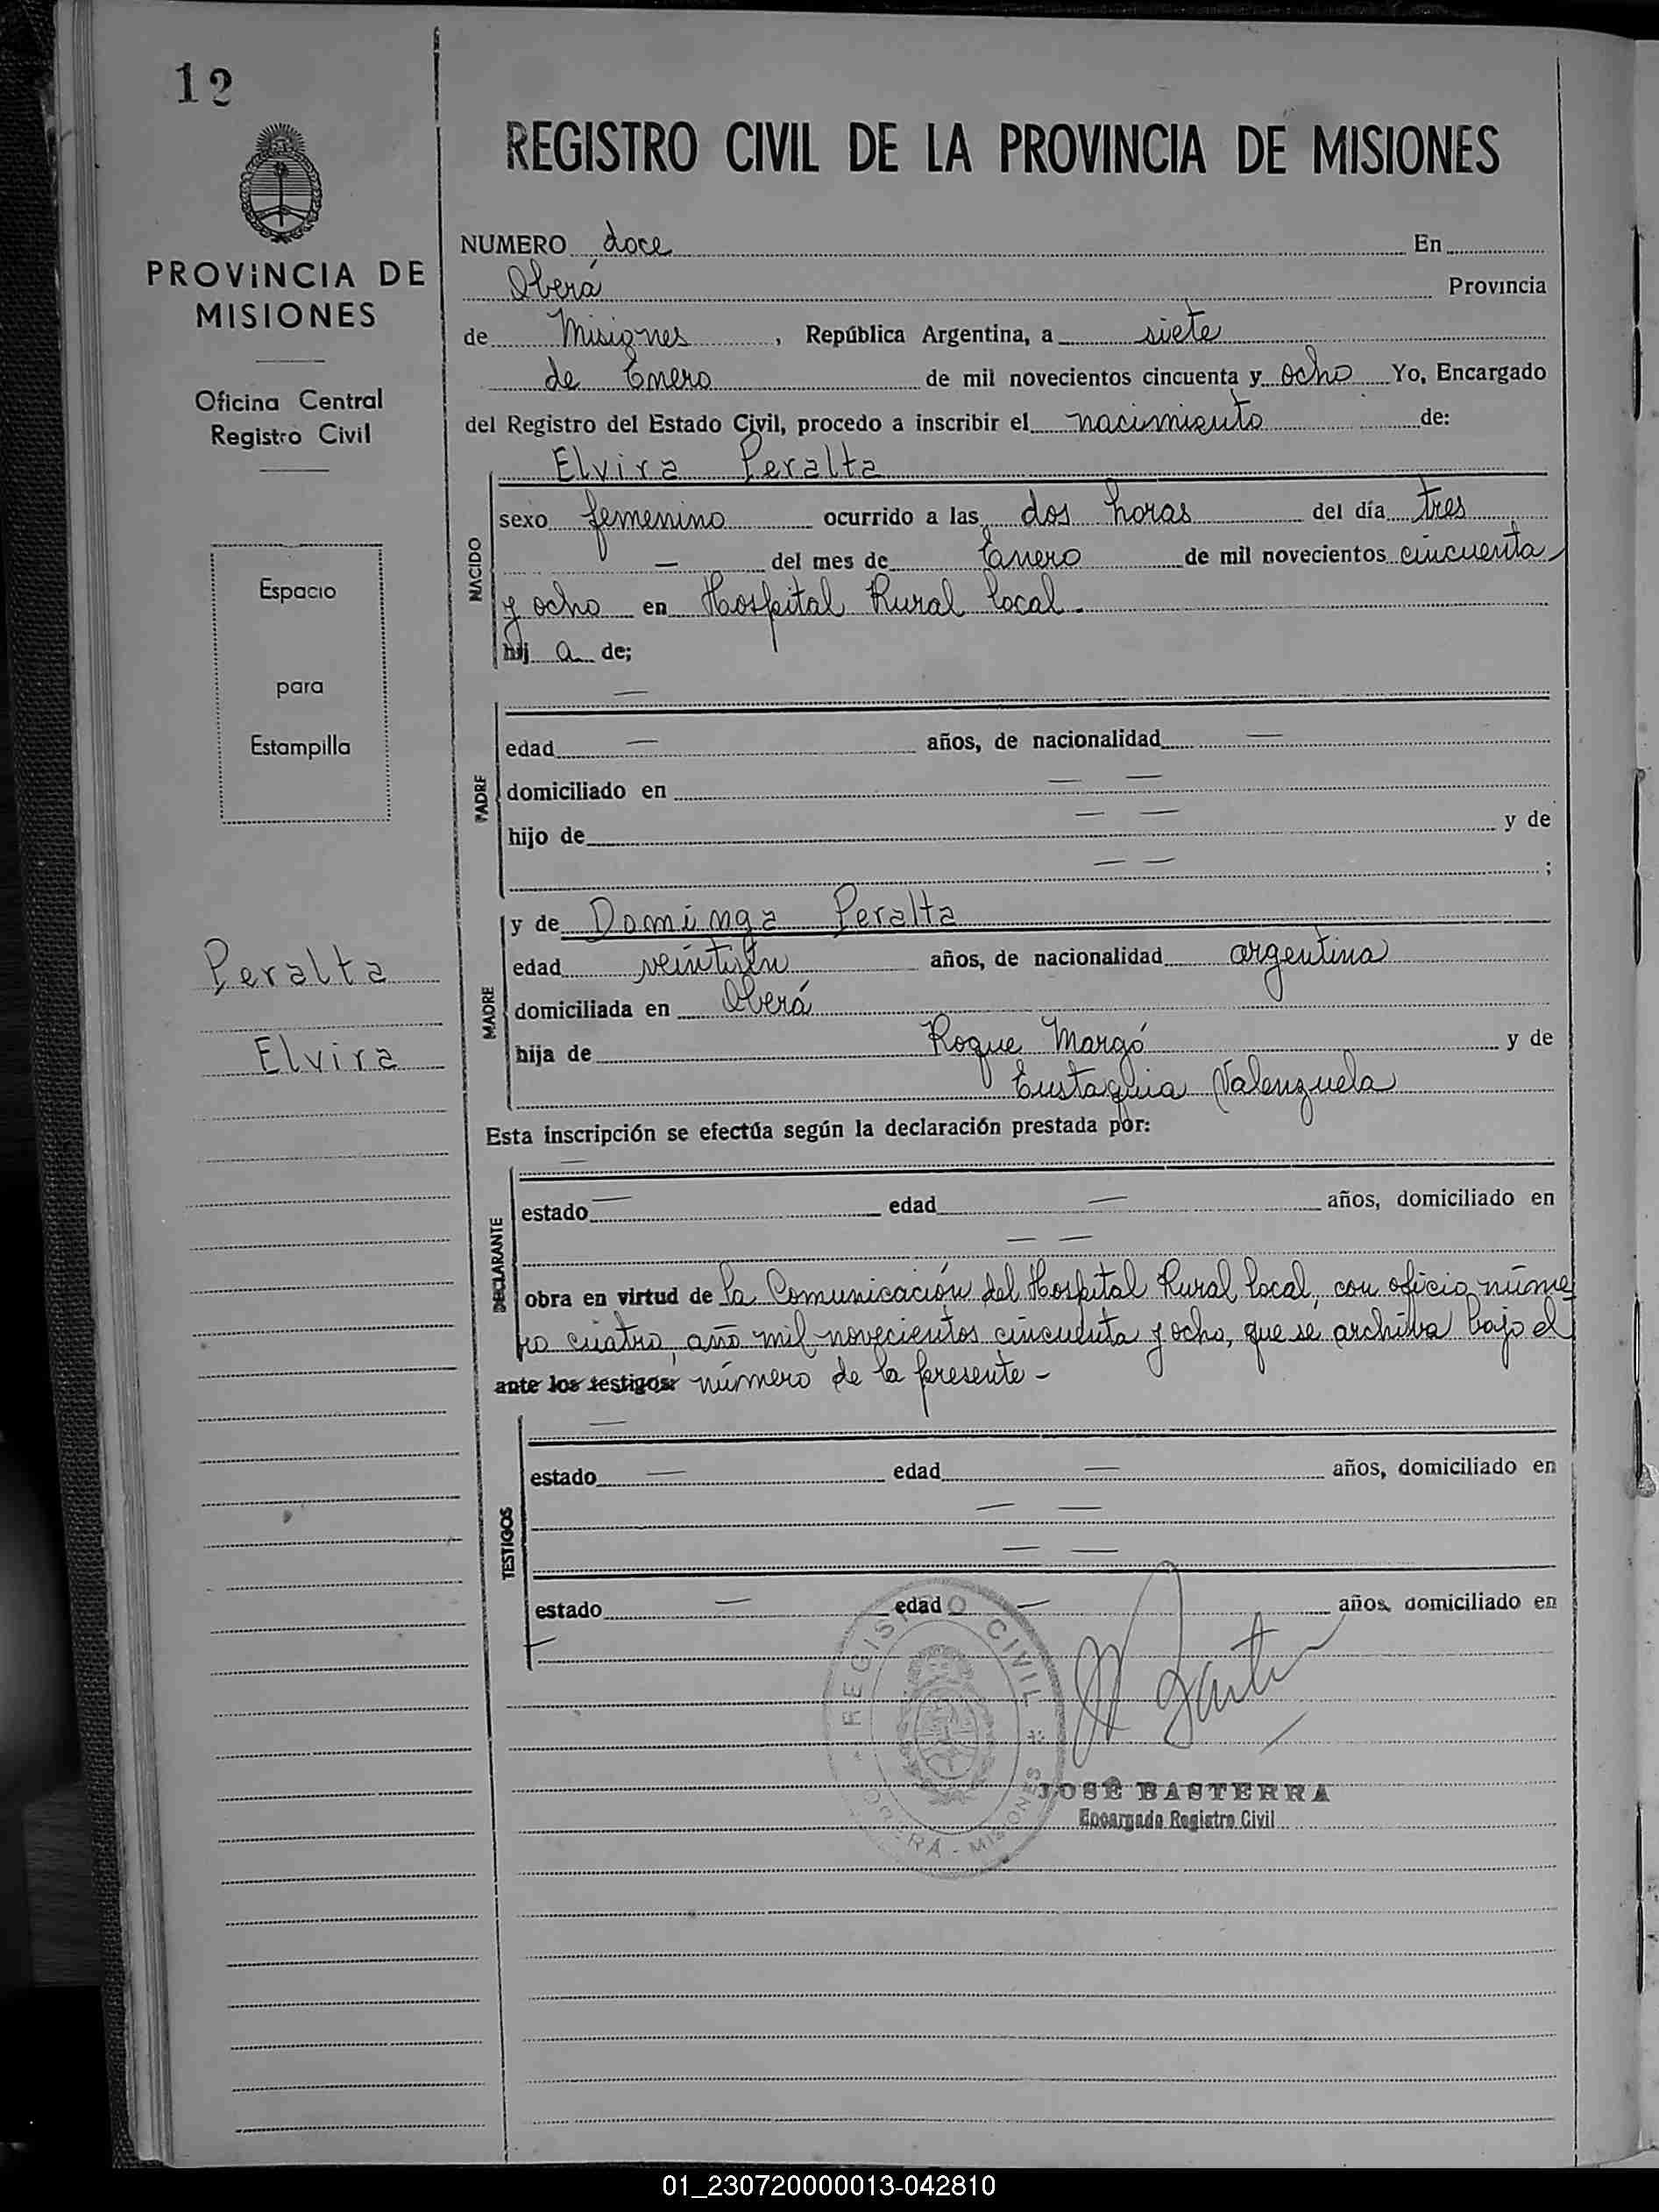 12
REGISTRO CIVIL DE LA PROVINCIA DE MISIONES
PROVINCIA DE
MISIONES
Oficina Central
Registro Civil
Espacio
para
Estampilla
Peralta
Elvira
NUMERO doce En
Oberá Provincia
de Misiones, República Argentina, a siete
de Enero de mil novecientos cincuenta y ocho Yo, Encargado
del Registro del Estado Civil, procedo a inscribir el nacimiento de:
Elvira Peralta
NACIDO
sexo femenino ocurrido a las dos horas del día tres
— del mes de Enero de mil novecientos cincuenta
y ocho en Hospital Rural local.
hij a de;
—
PADRE
edad — años, de nacionalidad —
domiciliado en — —
hijo de — — y de
— — ;
MADRE
y de Dominga Peralta
edad años, de nacionalidad argentina
domiciliada en Oberá
hija de Roque Margó y de
Eustaquia Valenzuela
Esta inscripción se efectúa según la declaración prestada por:
—
DECLARANTE
estado — edad — años, domiciliado en
— —
obra en virtud de la Comunicación del Hospital Rural local, con oficio núme
ro cuatro, año mil novecientos cincuenta y ocho, que se archiva bajo el
ante los testigos: número de la presente -
—
TESTIGOS
estado — edad — años, domiciliado en
— —
— —
estado — edad — años, domiciliado en
REGISTRO CIVIL
OBERÁ - MISIONES
JOSÉ BASTERRA
Encargado Registro Civil
01_230720000013-042810